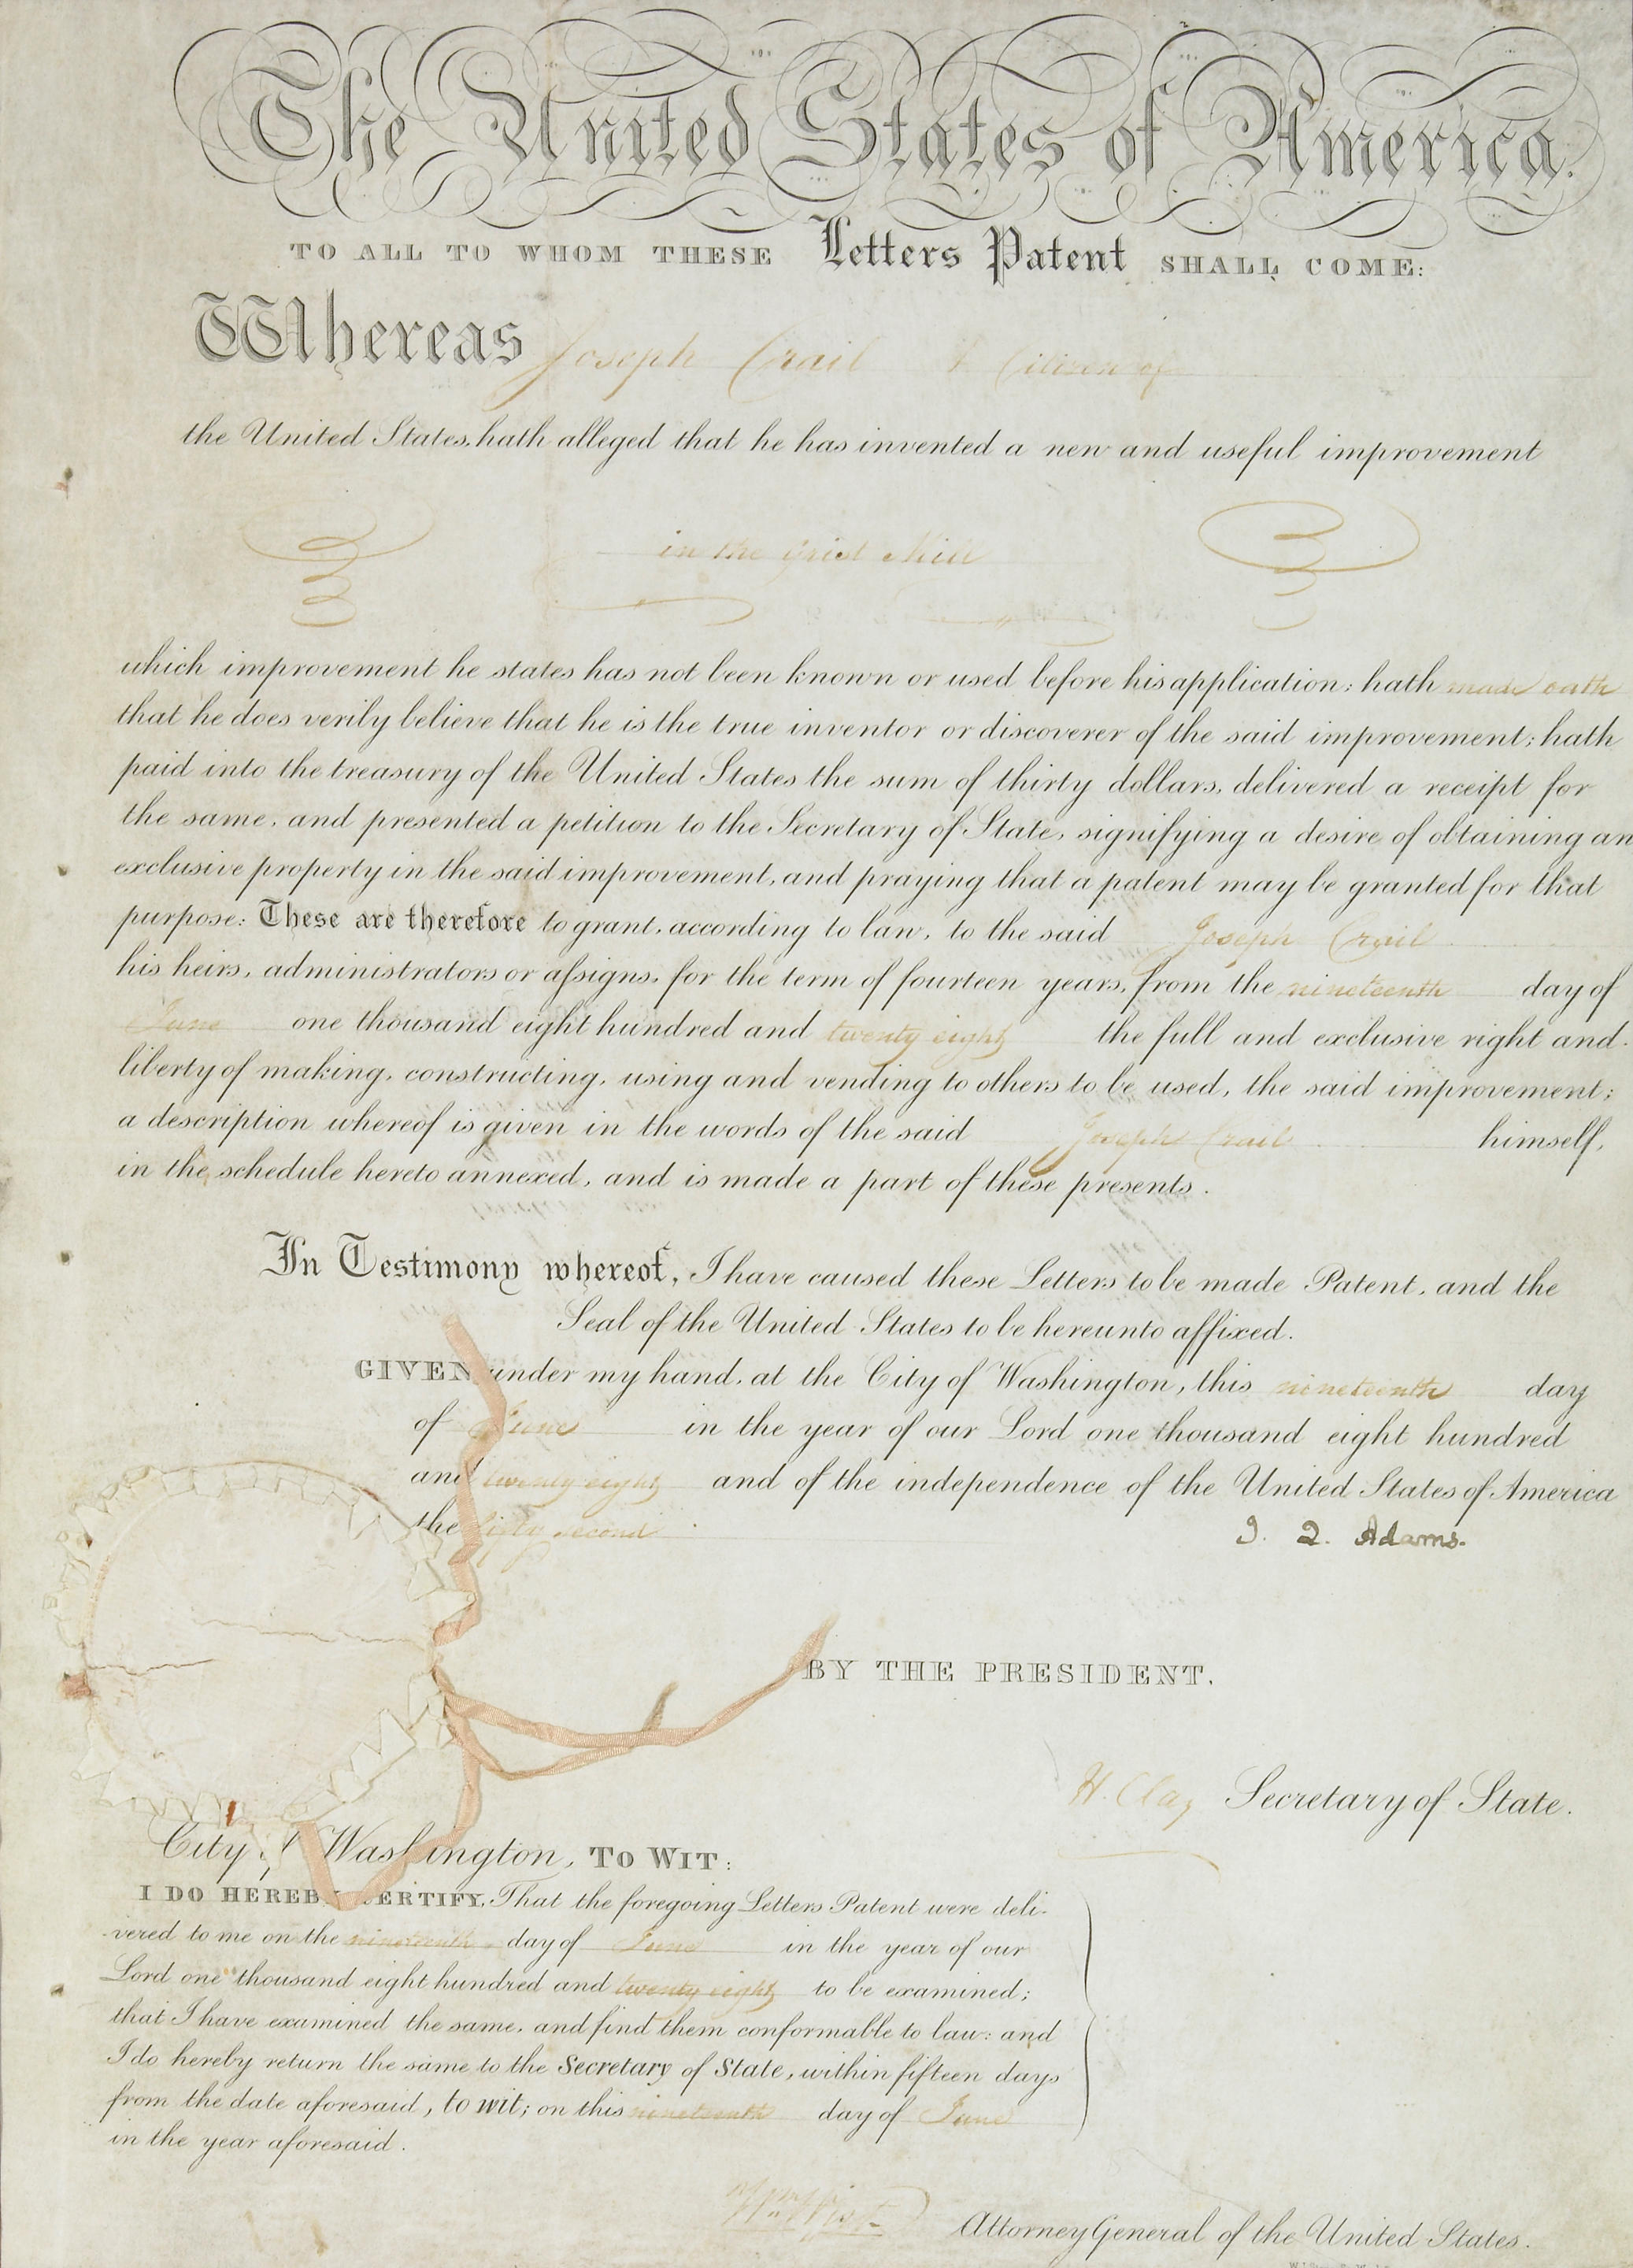 The United States of America.
TO ALL TO WHOM THESE Letters Patent SHALL COME:
Whereas Joseph Crail A Citizen of
the United States, hath alleged that he has invented a new and useful improvement
in the Grist Mill
which improvement he states has not been known or used before his application; hath made oath
that he does verily believe that he is the true inventor or discoverer of the said improvement; hath
paid into the treasury of the United States the sum of thirty dollars, delivered a receipt for
the same, and presented a petition to the Secretary of State, signifying a desire of obtaining an
exclusive property in the said improvement, and praying that a patent may be granted for that
purpose: These are therefore to grant, according to law, to the said Joseph Crail
his heirs, administrators or assigns, for the term of fourteen years, from the nineteenth day of
June one thousand eight hundred and twenty eight the full and exclusive right and
liberty of making, constructing, using and vending to others to be used, the said improvement;
a description whereof is given in the words of the said Joseph Crail himself,
in the schedule hereto annexed, and is made a part of these presents.
In Testimony whereof, I have caused these Letters to be made Patent, and the
Seal of the United States to be hereunto affixed.
GIVEN under my hand, at the City of Washington, this nineteenth day
of June in the year of our Lord one thousand eight hundred
and twenty eight and of the independence of the United States of America
the fifty second
J. Q. Adams.
BY THE PRESIDENT,
H. Clay Secretary of State.
City of Washington, TO WIT:
I DO HEREBY CERTIFY, That the foregoing Letters Patent were deli-
vered to me on the nineteenth day of June in the year of our
Lord one thousand eight hundred and twenty eight to be examined;
that I have examined the same, and find them conformable to law: and
I do hereby return the same to the Secretary of State, within fifteen days
from the date aforesaid, to wit; on this nineteenth day of June
in the year aforesaid.
Wm Wirt Attorney General of the United States.